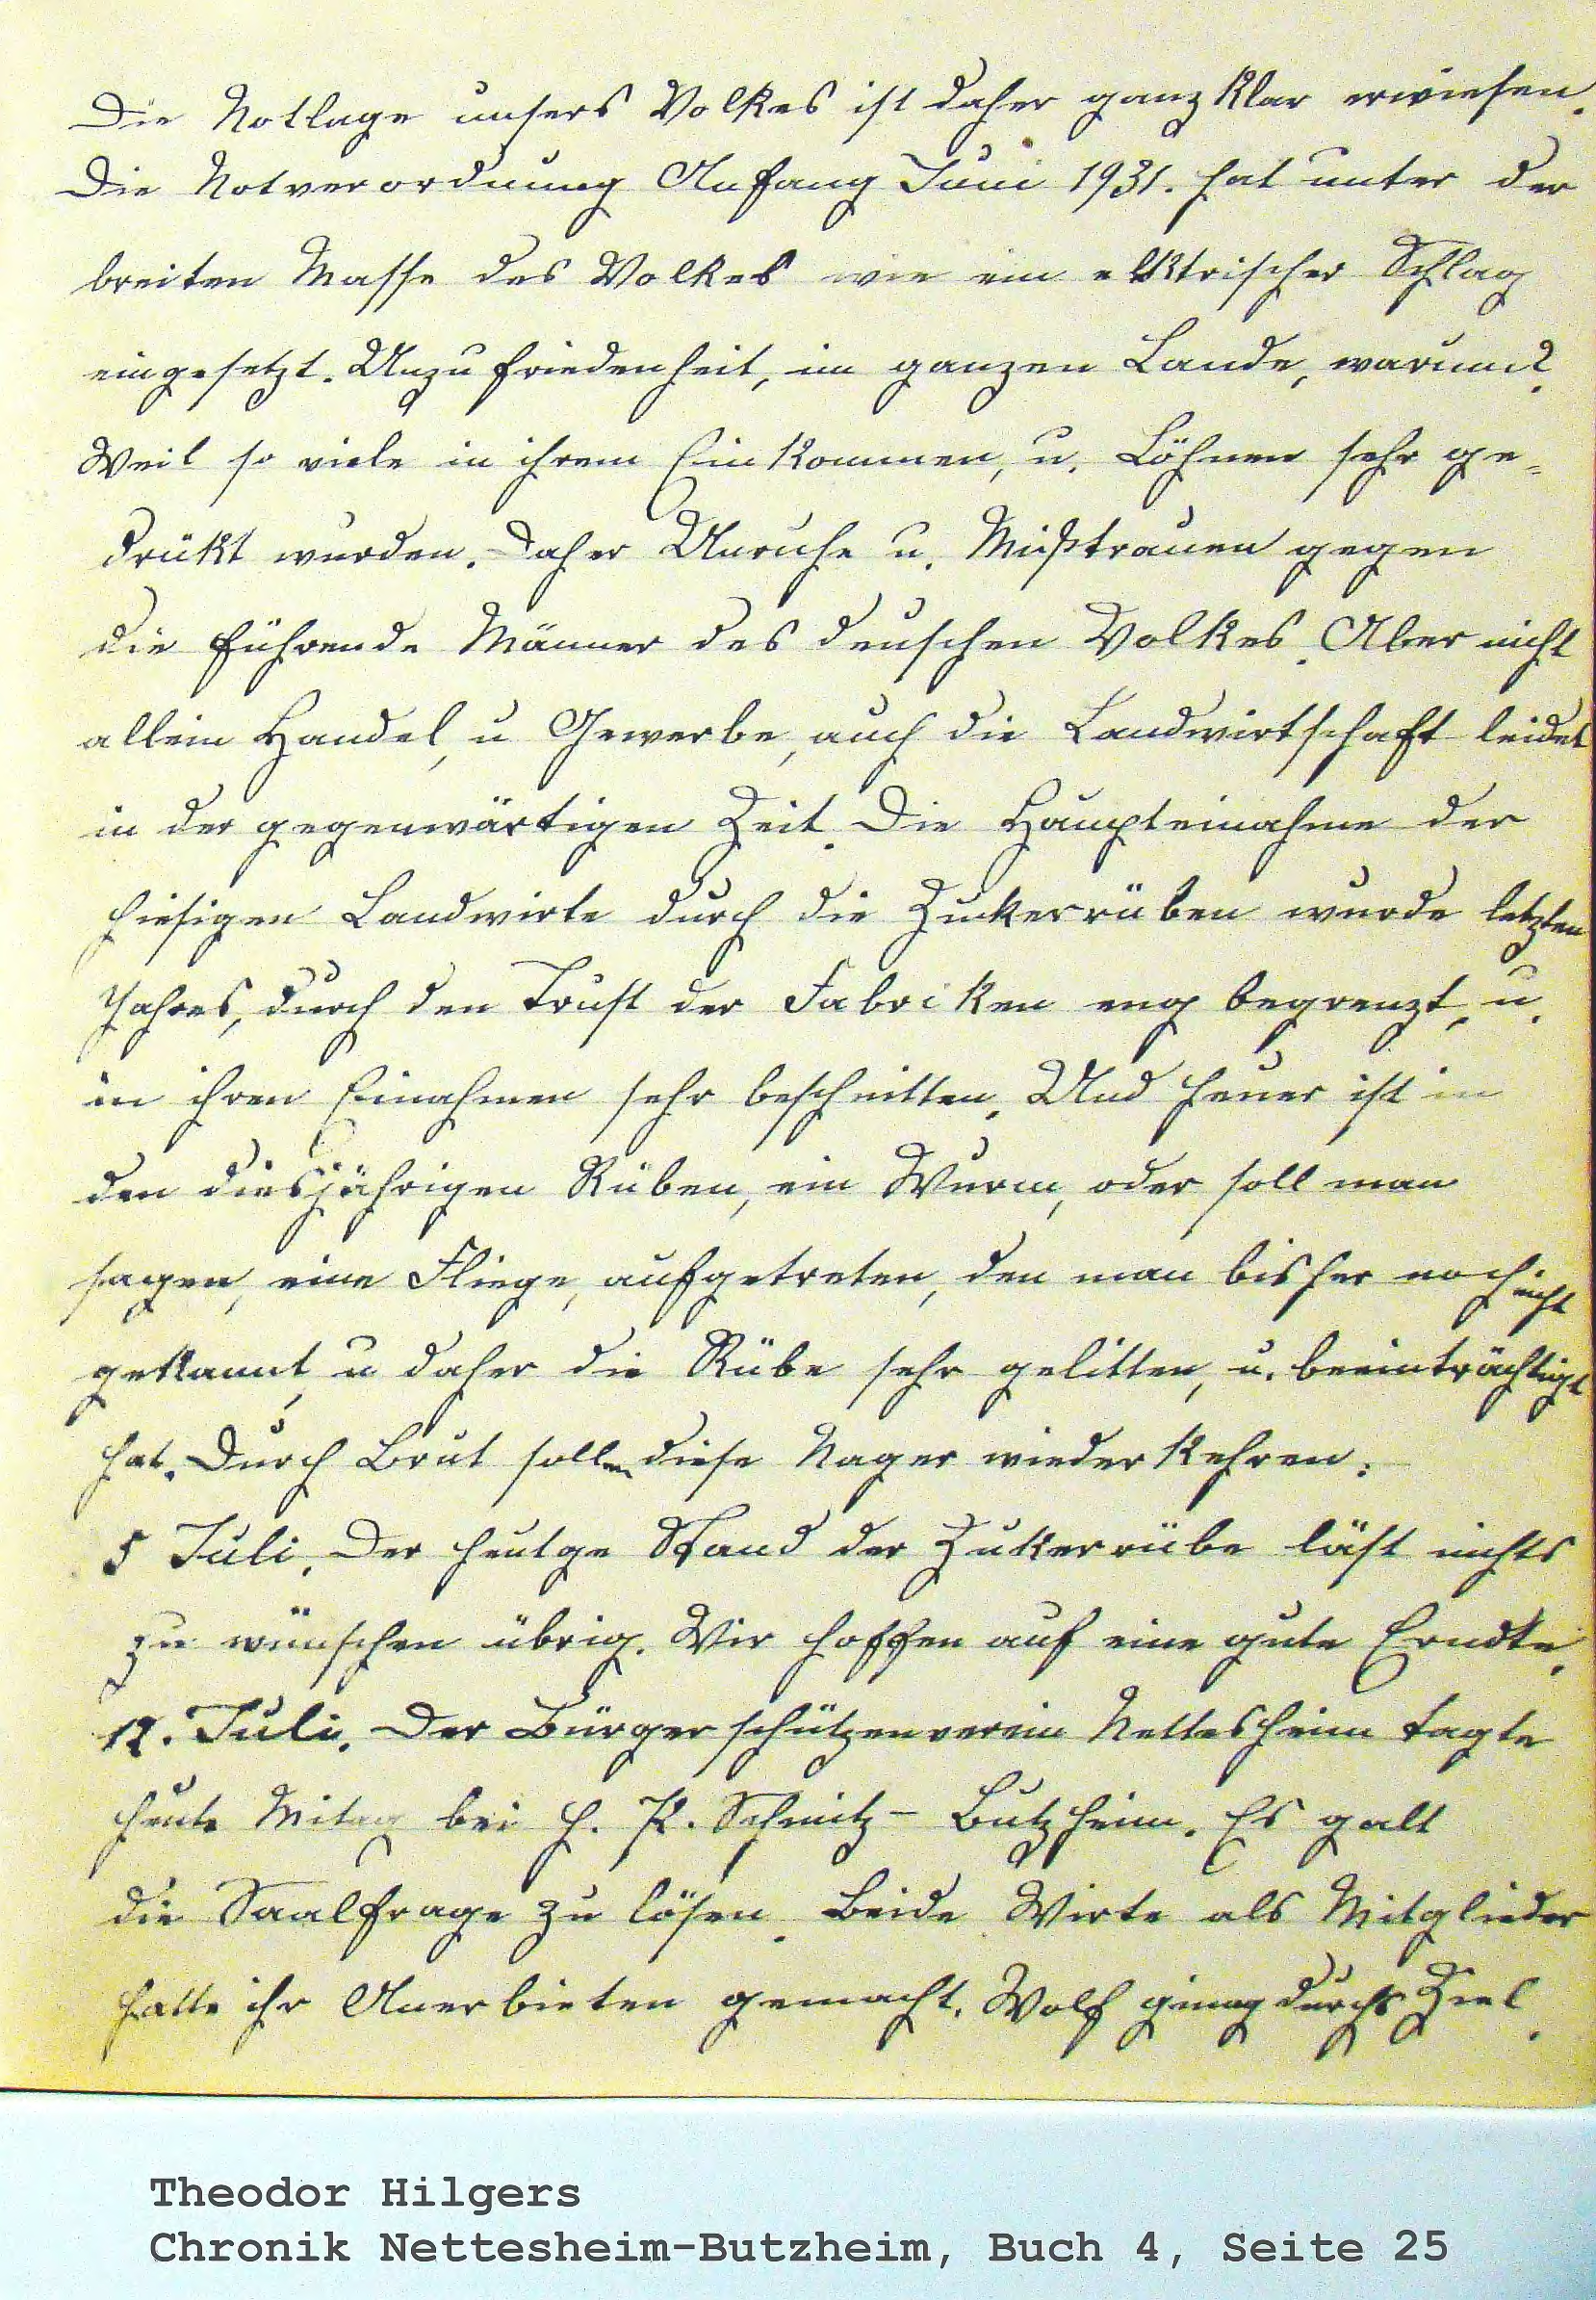 Die Notlage unsers Volkes ist daher ganz klar erwiesen.
Die Notverordnung Anfang Juni 1931. hat unter der
breiten Masse des Volkes wie ein elktrischer Schlag
eingesetzt. Unzufriedenheit, im ganzen Lande, warum?
Weil so viele in ihrem Einkommen, u. Löhnen sehr ge=
drükt wurden. Daher Unruhe u. Mißtrauen gegen
die führende Männer des deuschen Volkes. Aber nicht
allein Handel, u Gewerbe, auch die Landwirtschaft leidet
in der gegenwärtigen Zeit. Die Haupteinahme der
hiesigen Landwirte durch die Zuckerrüben wurde letzten
Jahres, durch den Trust der Fabriken eng begrenzt, u.
in ihren Einahmen sehr beschnitten. Und heuer ist in
den diesjährigen Rüben, ein Wurm, oder soll man
sagen, eine Fliege, aufgetreten, den man bisher noch nicht
gekannt, u daher die Rübe sehr gelitten, u. beeinträchtigt
hat. Durch Brut sollen diese Nager wiederkehren.
5 Juli. Der heutge Stand der Zukerrübe läst nichts
zu wünschen übrig. Wir hoffen auf eine gute Erndte.
12. Juli. Der Bürgerschützenverein Nettesheim tagte
heute Mitag bei H. P. Schmitz - Butzheim. Es galt
die Saalfrage zu lösen. Beide Wirte als Mitglieder
hatte ihr Anerbieten gemacht. Wolf ging durchs Ziel.
Theodor Hilgers
Chronik Nettesheim-Butzheim, Buch 4, Seite 25